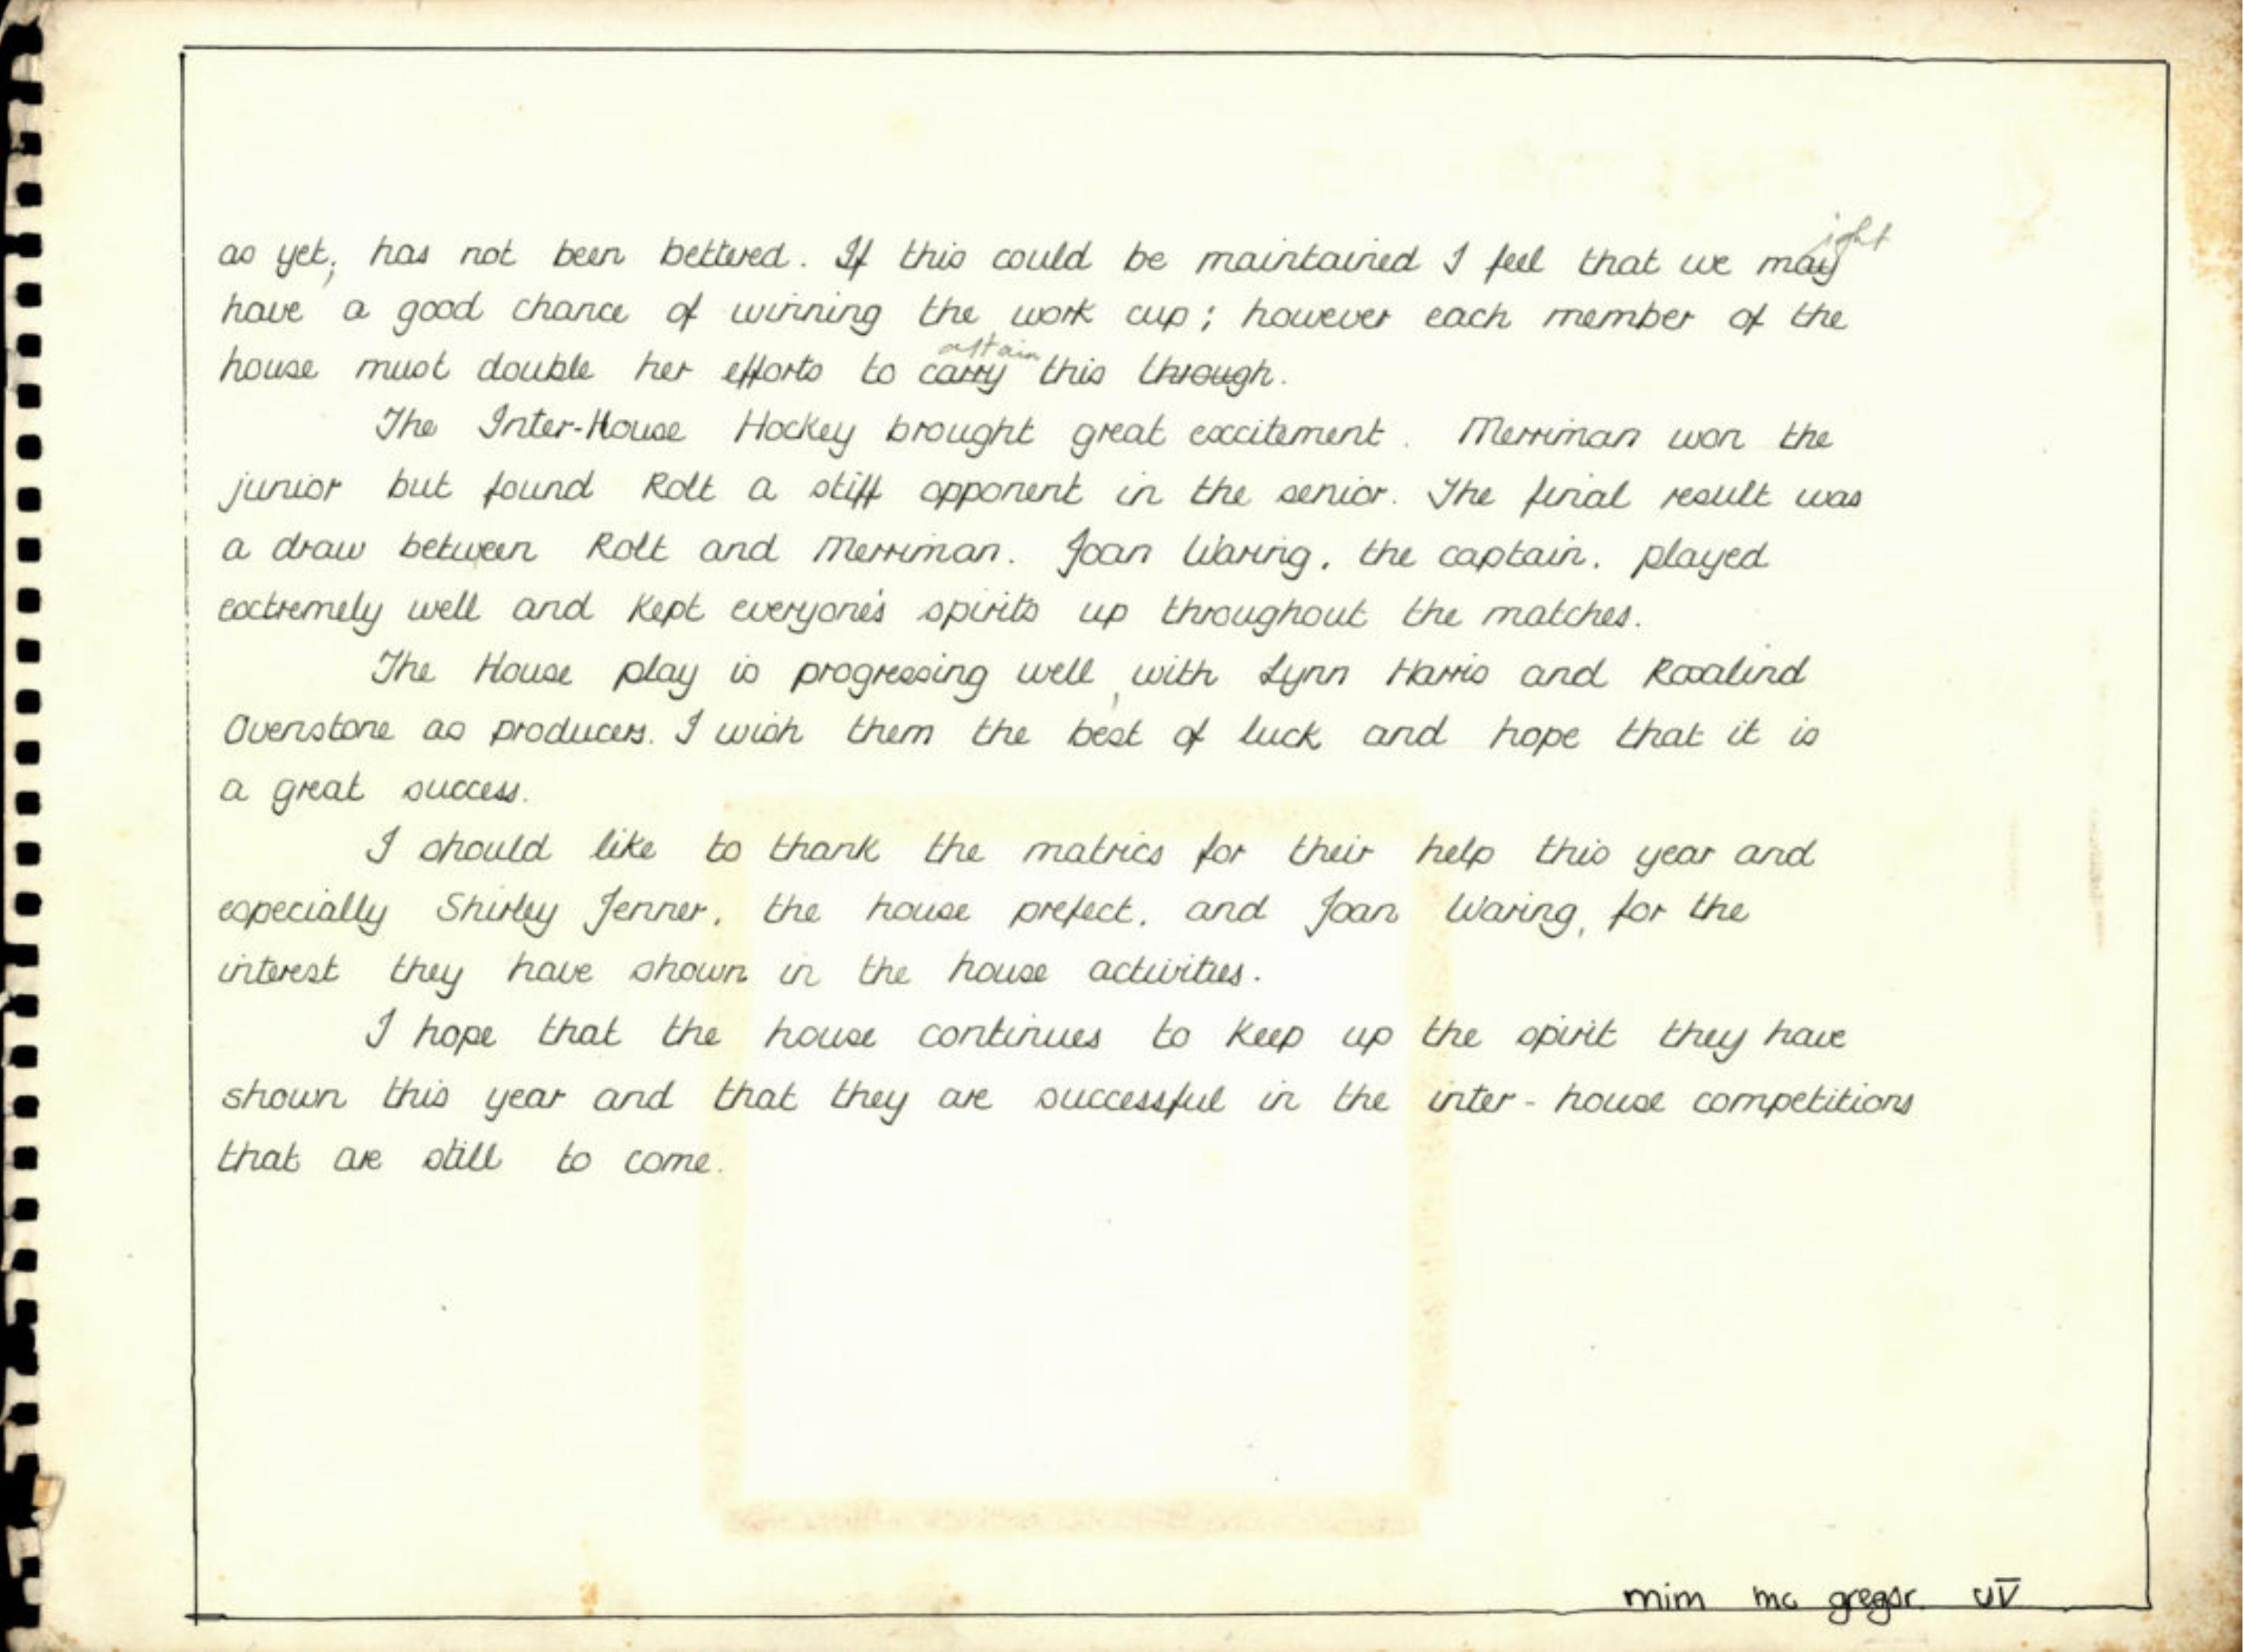 as yet, has not been bettered. If this could be maintained I feel that we may ight
have a good chance of winning the work cup; however each member of the
house must double her efforts to carry attain this through.
The Inter-House Hockey brought great excitement. Merriman won the
junior but found Rolt a stiff opponent in the senior. The final result was
a draw between Rolt and Merriman. Joan Waring, the captain, played
extremely well and kept everyone's spirits up throughout the matches.
The House play is progressing well, with Lynn Harris and Rosalind
Ovenstone as producers. I wish them the best of luck and hope that it is
a great success.
I should like to thank the matrics for their help this year and
especially Shirley Jenner, the house prefect, and Joan Waring, for the
interest they have shown in the house activities.
I hope that the house continues to keep up the spirit they have
shown this year and that they are successful in the inter-house competitions
that are still to come.
mim mc gregor. UV